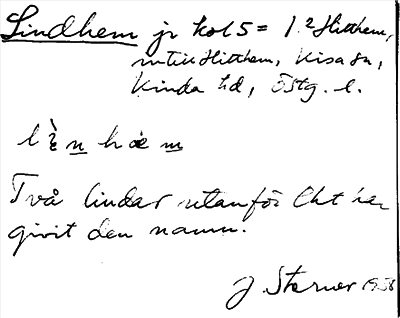 Lindhem jr kol 5 = 1.2 Hitthem,
intill Hitthem, Kisa sn,
Kinda hd, Östg. l.
Två lindar utanför Cht har
givit den namn.
J Starner 1938